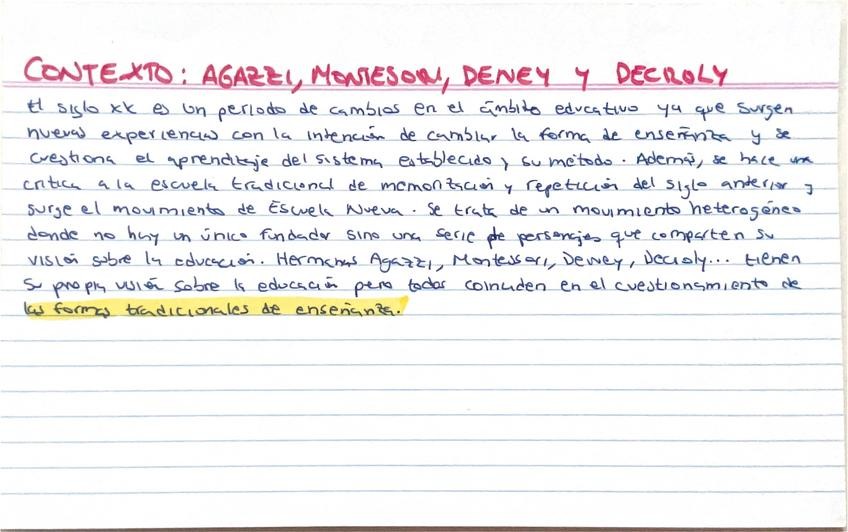 CONTEXTO: AGAZZI, MONTESORI, DEWEY Y DECROLY
El siglo XX es un periodo de cambios en el ámbito educativo ya que surgen
nuevas experiencias con la intención de cambiar la forma de enseñanza y se
cuestiona el aprendizaje del sistema establecido y su método. Además, se hace una
crítica a la escuela tradicional de memorización y repetición del siglo anterior y
surge el movimiento de Escuela Nueva. Se trata de un movimiento heterogéneo
donde no hay un único fundador sino una serie de personajes que comparten su
visión sobre la educación. Hermanas Agazzi, Montessori, Dewey, Decroly... tienen
su propia visión sobre la educación pero todas coinciden en el cuestionamiento de
las formas tradicionales de enseñanza.